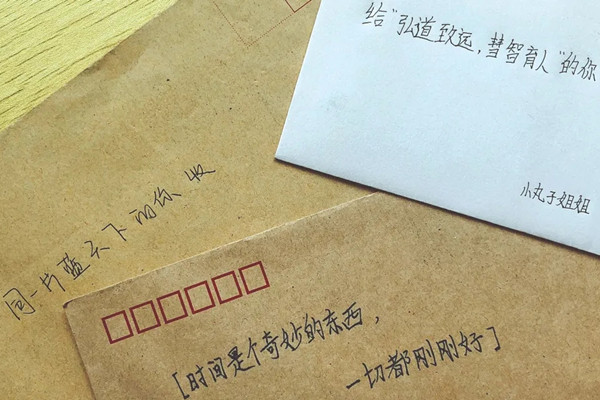 给“弘道致远，彗智育人”的你
小丸子姐姐
同一片蓝天下的你收
[时间是个奇妙的东西，
一切都刚刚好]